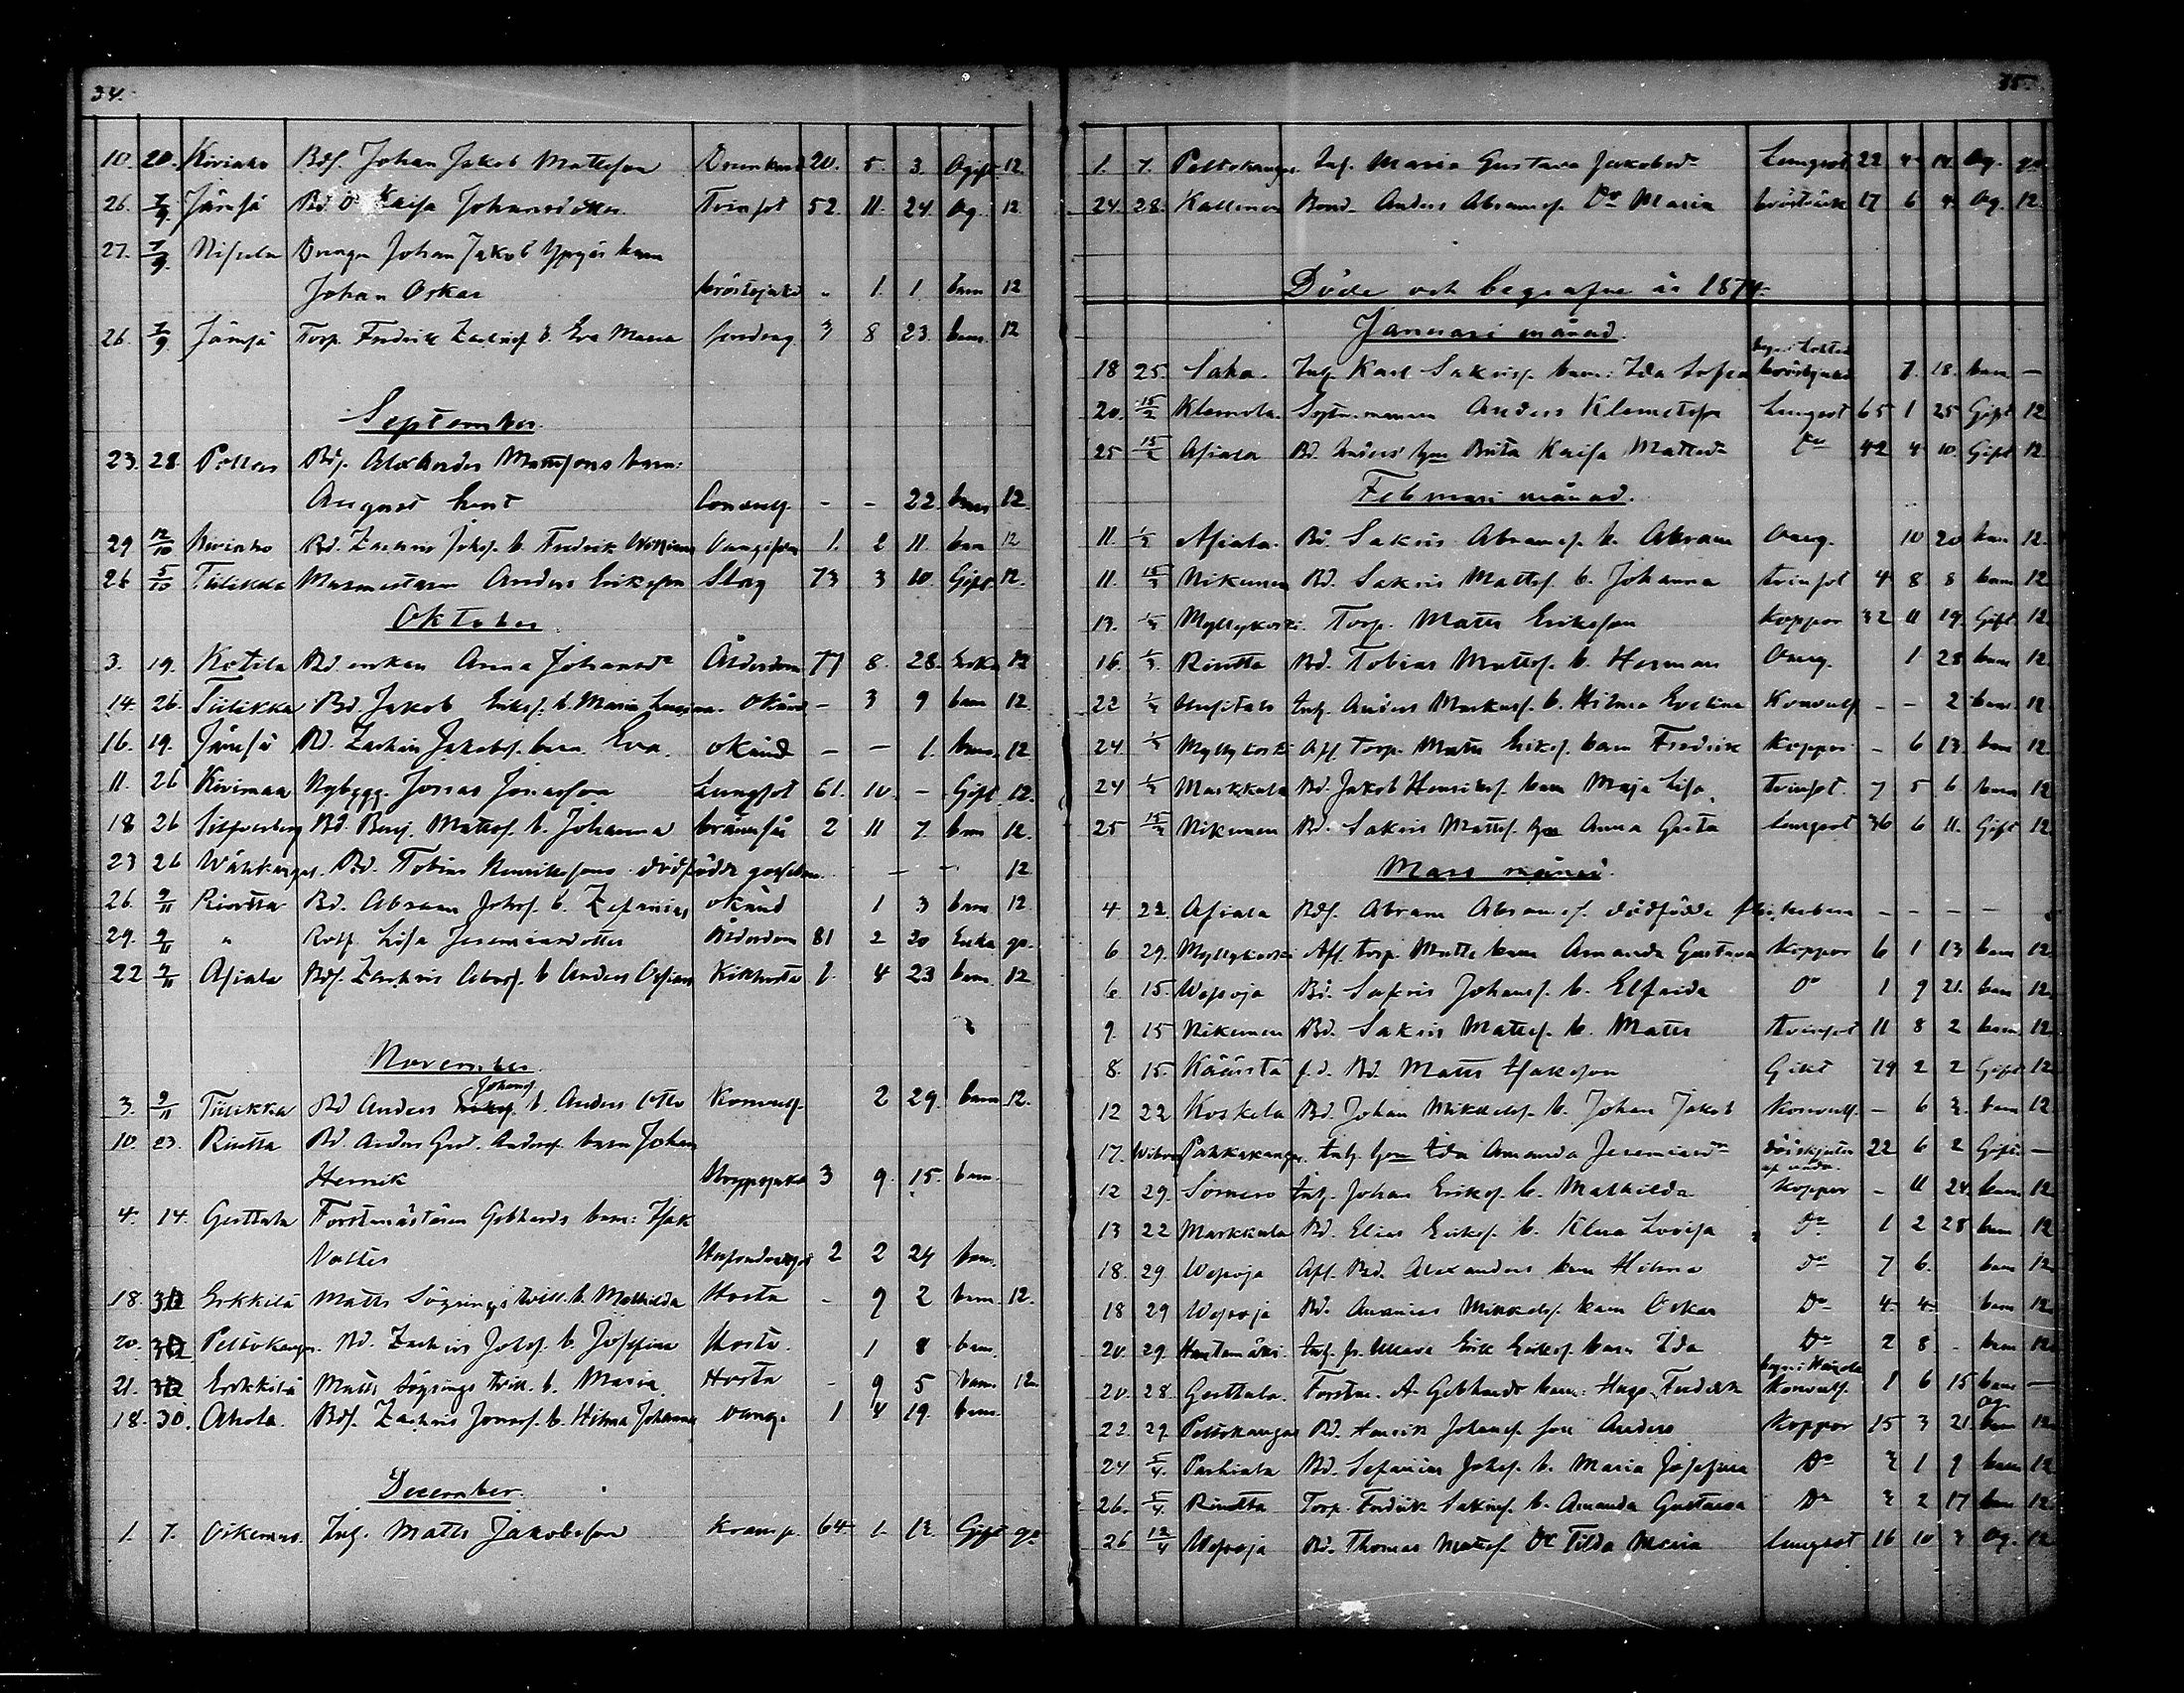 34.
10. 20. Kiviaho Bds. Johan Jakob Mattsson 20. 5. 3. Ogift 12.
26. 7/9. Jämsä Bd. D. Kaisa Johansdotter Tvinsot 52. 11. 24. og. 12
27. 7/9. Drengen Johan Jakob barn
Johan Oskar bröstsjukd „ 1. 1. barn 12
26. 7/9 Jämsä Torp. Fredrik Zachrisf. b. Eva Maria 3 8 23. barn 12
September.
23. 28 Bds. Alexander Mattssons barn:
August Convuls. - - 22. barn 12.
29 12/10 Kiviaho Bd. Zachris Johsf. b. Fredrik William 1. 2 11. barn 12
26 5/10 Tulikka Anders Eriksson Slag 73 3 10. Gift. 12.
Oktober.
3. 19. Kotila Bd. enkan Anna Johansdr Ålderdom 77 8. 28. Enka 12
14. 26. Tulikka Bd. Jakob Eriksf. b. Maria Okänd - 3 9 barn 12
16. 19. Jämsä Bd. Zachris Jakobsf. barn Eva. okänd - - 1. barn. 12
11. 26 Kivimaa Nybygg. Jonas Jonasson Lungsot 61. 10. - Gift. 12.
18 26 Bd. Benj. Mattsf. b. Johanna 2 11 7. barn 12.
23 26 Bd. Tobias Henrikssons dödfödde gossebarn. - - 12
26. 9/11 Riutta Bd. Abram Johsf. b. Zefanias okänd 1 3 barn 12.
29. 9/11 „ Lisa Jeremiasdotter Ålderdom 81 2 20 Enka
22 9/11 Asiala Bds. Zachris Abrsf. b Anders Kikhosta 1. 4 23 barn. 12
November.
3. 9/11 Tulikka Bd Anders Johansf. b. Anders Otto Konvuls. 2 29. barn 12.
10. 23. Riutta Bd. Anders Gust. Andersf. barn Johan
Henrik Strypsjuka 3 9. 15. barn.
4. 14. Gerttula Forstmästaren Gebhards barn: Isak
Valter 2 2 24 barn.
18. Erkkilä Matts tvill. b. Mathilda Hosta - 9 2 barn. 12.
20. Peltokangas. Bd. Zachris Johsf. b. Josefina Hosta. 1 8 barn.
21. Erkkilä Matts tvill. b. Maria. Hosta - 9 5 barn 12
18. 30. Ahola. Bds. Zachris Jonasf. b. Hilma Johanna 1 4 19. barn.
December.
1. 7. Oikemus. Inh. Matts Jakobsson Kramp. 64 1. 12. Gift
35.
1. 7. Peltokangas. Inh. Maria Gustava Jakobsdr Lungsot 22 4. 14. Og.
24. 28. Kallinen Bond. Anders Abramsf. Dr Maria 17 6 4. Og. 12.
Döde och begrafne år 1874.
Januari månad.
18 25. Saha. Inh. Karl Sakrisf. barn: Ida Sofia bröstsjukd 7. 18. barn -
20. 15/2 Klemola. Anders Klemetsson Lungsot 65 1 25 Gift 12
25 15/2 Asiala Bd. Anders' hu Brita Kaisa Mattsdr Do 42 4 10. Gift 12.
Februari månad.
11. Asiala. Bd. Sakris Abramsf. b. Abram 10 20 barn 12.
11. 15/2 Nikunen Bd. Sakris Mattsf. b. Johanna tvinsot 4 8 8 barn 12.
13. Myllykoski. Torp. Matts Eriksson Koppor 32 11 19. Gift. 12.
16. Riutta Bd. Tobias Mattsf. b. Herman 1 28 barn 12.
22 Uusitalo Inh. Anders Markusf. b. Hilma Evelina Konvuls. - - 2 barn 12.
24 Myllykoski Afl. Torp. Matts Eriksf. barn Fredrik Koppor - 6 13. barn 12.
24 Markkula Bd. Jakob Henriksf. barn Maja Lisa. tvinsot. 7 5 6 barn 12
25 15/3 Nikunen Bd. Sakris Mattsf. hu Anna Greta Lungsot 36 6 11. Gift 12
Mars månad.
4 22. Asiala Bds. Abram Abramsf. dödfödde flickebarn - - - -
6 29. Myllykoski Afl. torp. Matts barn Amanda Gustava Koppor 6 1 13 barn 12.
6 15. Wepsoja Bd. Sakris Johansf. b. Elfrida Do 1 9 21. barn 12.
9. 15 Nikunen Bd. Sakris Mattsf. b. Matts tvinsot 11 8 2 barn 12.
8. 15. Kääntä f.d. Bd. Matts Isaksson Gikt 79 2 2 Gift 12
12 22 Koskela Bd. Johan Mikkelsf. b. Johan Jakob Konvuls. - 6 barn 12
17. Pahkakangas. Inh. hu Ida Amanda Jeremiasdr 22 6 2 Gift. -
12 29. Somero Inh. Johan Eriksf. b. Mathilda Koppor - 11 24. barn 12.
13 22 Markkula Bd. Elias Eriksf. b. Klara Lovisa Do 1 2 28 barn 12
18. 29. Wepsoja Afl. Bd. Alexanders barn Hilma Do 7 6. barn 12.
18 29 Wepsoja Bd. Ananias Mikkelsf. barn Oskar Do 4. 4. barn 12.
20. 29. Hautamäki. Inh. Erik Eriksf. barn Ida Do 2 8. - barn 12
20. 28. Gerttula. Forstm. A. Gebhards barn: Hugo Fredrik Konvuls. 1 6 15 barn -
22. 29. Peltokangas Bd. Henrik Johansf. son Anders Koppor 15 3 21. Og 12
24 5/4. Parhiala Bd. Sefanias Johsf. b. Maria Josefina Do 1 9 barn 12
26. 5/4. Riutta Torp. Fredrik Sakrisf. b. Amanda Gustava Do 2 17 barn 12.
26 12/4 Wepsoja Bd. Thomas Mattsf. Dr Tilda Maria Lungsot 16 10 3 Og. 12